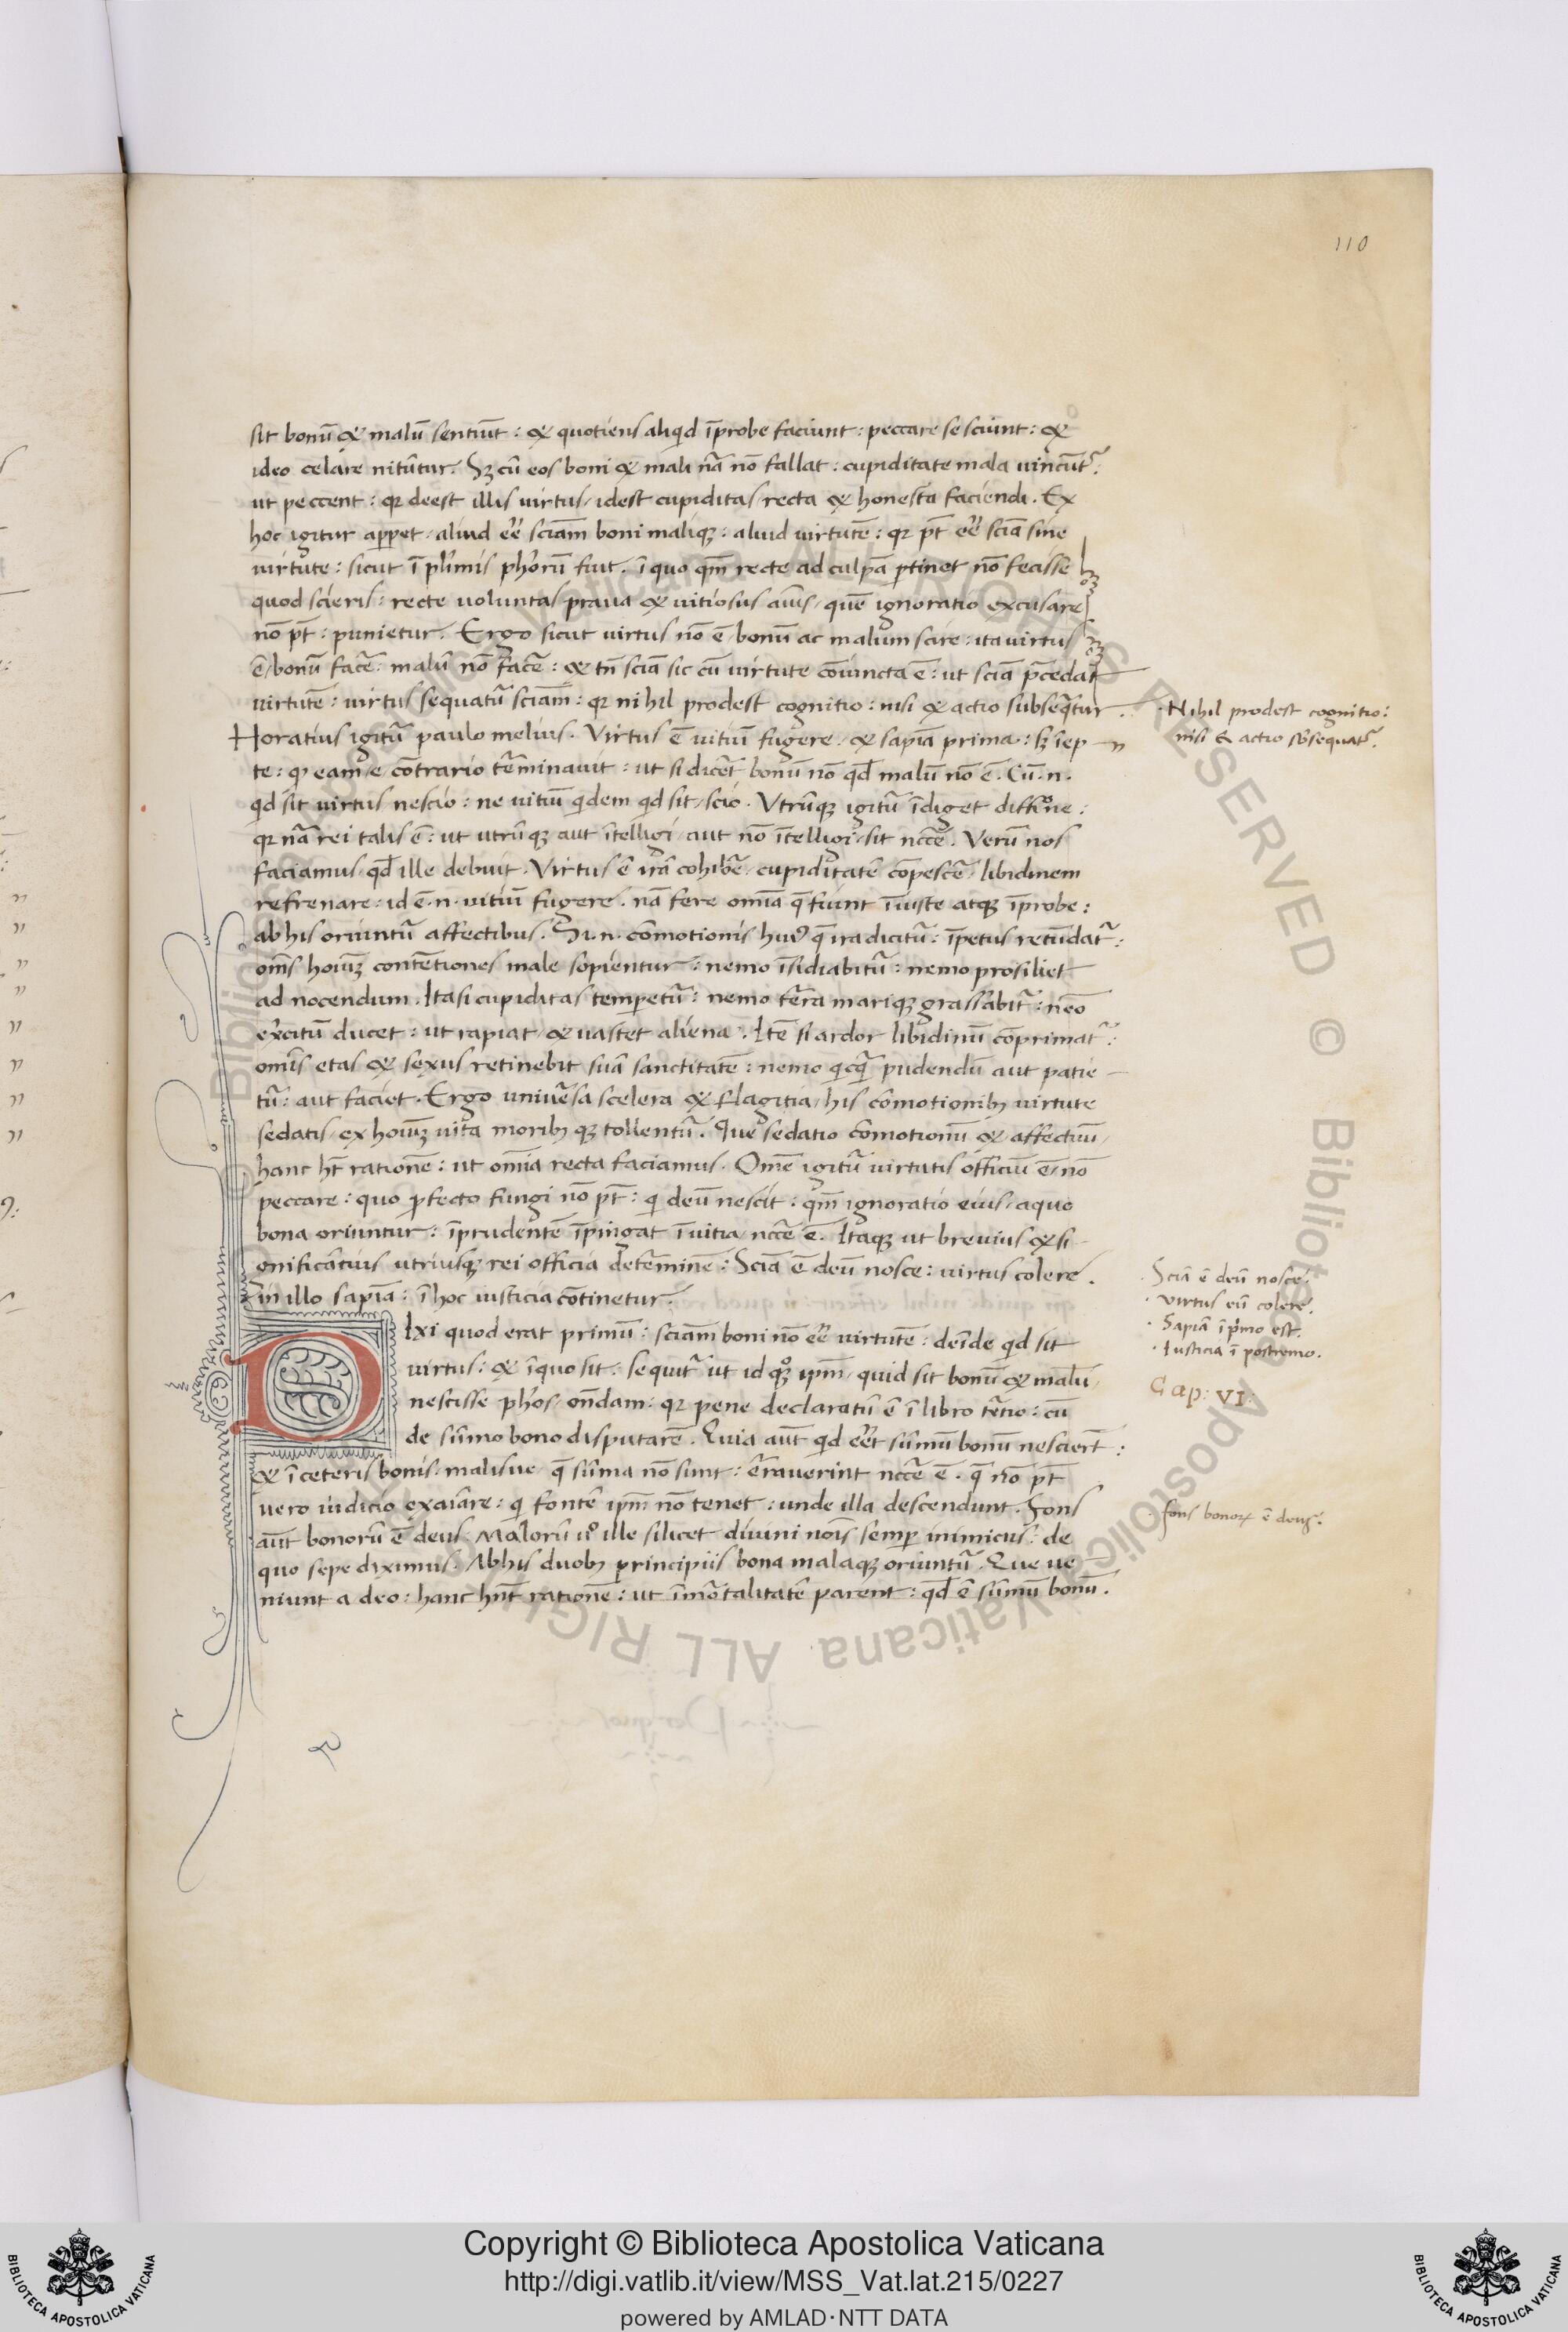 110
sit bonū & malū sentiūt: & quotiens aliqid īprobe faciunt: peccare se sciunt: &
ideo celare nitūtur. Sʒ cū eos boni & mali nā nō fallat: cupiditate mala vincūtr̄.
ut peccent: qr deest illis virtus / idest cupiditas recta & honesta faciendi. Ex
hoc igitur apparet / aliud eē sciam̄ boni maliqʒ: aliud virtutē: qr pt̄ eē sciā sine
virtute: sicut ī pl̄imis ph̄orū fuit. ī quo qm̄ recte ad culpā ptinet nō fecisse
quod scieris: recte voluntas prava & vitiosus aīus / quē ignoratio excusare
nō pt̄: punietur. Ergo sicut virtus nō ē / bonū ac malum scire: ita virtus
ē / bonū facē: malū nō facē: & tn̄ sciā sic cū virtute cōiuncta ē: ut sciā p̄cedat
virtutē: virtus sequatū sciam̄: qr nihil prodest cognitio: nisi & actio subseq̄tur.
Horatius igitū paulo melius. Virtus ē vitiū fugere / & sapiā prima: sʒ īep
te: qʼ eam e contrario tēminavit: ut si dicēt bonū nō qd̄ malū nō ē. Cū .n.
qid sit virtus nescio: ne vitiū qidem qid sit / scio. Utrūqʒ igitū īdiget diffiōne:
qr nā rei talis ē: ut utrūqʒ aut ītelligi / aut nō ītelligi / sit nccē. Verū nos
faciamus / qd̄ ille debuit. Virtus ē irā cohibē / cupiditatē cōpescē / libidinem
refrenare: id ē .n. vitiū fugere. nā fere omīa q̄ fiunt īiuste atqʒ īprobe:
ab his oriuntū affectibus. Si .n. cōmotionis huiꝰ q̄ ira dicitū: īpetus retūdatr̄:
om̄s hoiūʒ contētiones male sopientur: nemo īsidiabitū: nemo prosiliet
ad nocendum. Ita si cupiditas temperetū: nemo tēra mariqʒ grassabitr̄: nēo
exercitū ducet: ut rapiat / & vastet aliena. Itē si ardor libidinū cōprimatr̄:
omīs etas & sexus retinebit suā sanctitatē: nemo qicq̄ pudendū aut patie
tū: aut faciet. Ergo univēsa scelera & flagitia / his cōmotionibʒ virtute
sedatis / ex hoiūʒ vita moribʒqʒ tollentū. Que sedatio cōmotionū & affectuū /
hanc ht̄ rationē: ut omīa recta faciamus. Omē igitū virtutis officiū ē / nō
peccare: quo pfecto fungi nō pt̄: qi deū nescit: qm̄ ignoratio eius / a quo
bona oriuntur: īprudentē īpingat ī vitia / nccē ē. Itaqʒ ut brevius & si
gnificātius utriusqʒ rei officia detēminē: Sciā ē deū nosce: virtus colere.
in illo sapiā: ī hoc iusticia cōtinetur.
DIxi quod erat primū: sciam̄ boni nō eē virtutē: deīde qid sit
virtus: & ī quo sit: sequitr̄ ut id qʒ° ipm̄ / quid sit bonū & malū /
nescisse ph̄os / on̄dam: qr pene declaratū ē ī libro tētio: cū
de sūmo bono disputarē. Quia aūt qid eēt sūmū bonū nesciert̄:
& ī ceteris bonis / malisve q̄ sūma nō sunt: ēraverint nccē ē. q̄ nō pt̄
vero iudicio exaīare: qi fontē ipm̄ nō tenet: unde illa descendunt. Fons
aūt bonorū ē deus. Malorū v° ille silicet divini noīs semper inimicus: de
quo sepe diximus. Ab his duobʒ principiis bona malaqʒ oriuntū. Que ve
niunt a deo: hanc hn̄t rationē: ut īmōtalitatē parent: qd̄ ē sūmū bonū.
· Nihil prodest cognitio:
nisi & actio sb̄sequatr̄.
· Sciā ē deū nosce.
· Virtus eū colere.
· Sapiā ī pi̇mo est.
· Iusticia ī postremo.
Cap: VI:
· fons bonoꝝ ē deus.
Copyright © Biblioteca Apostolica Vaticana
http://digi.vatlib.it/view/MSS_Vat.lat.215/0227
powered by AMLAD·NTT DATA
BIBLIOTECA APOSTOLICA VATICANA
BIBLIOTECA APOSTOLICA VATICANA